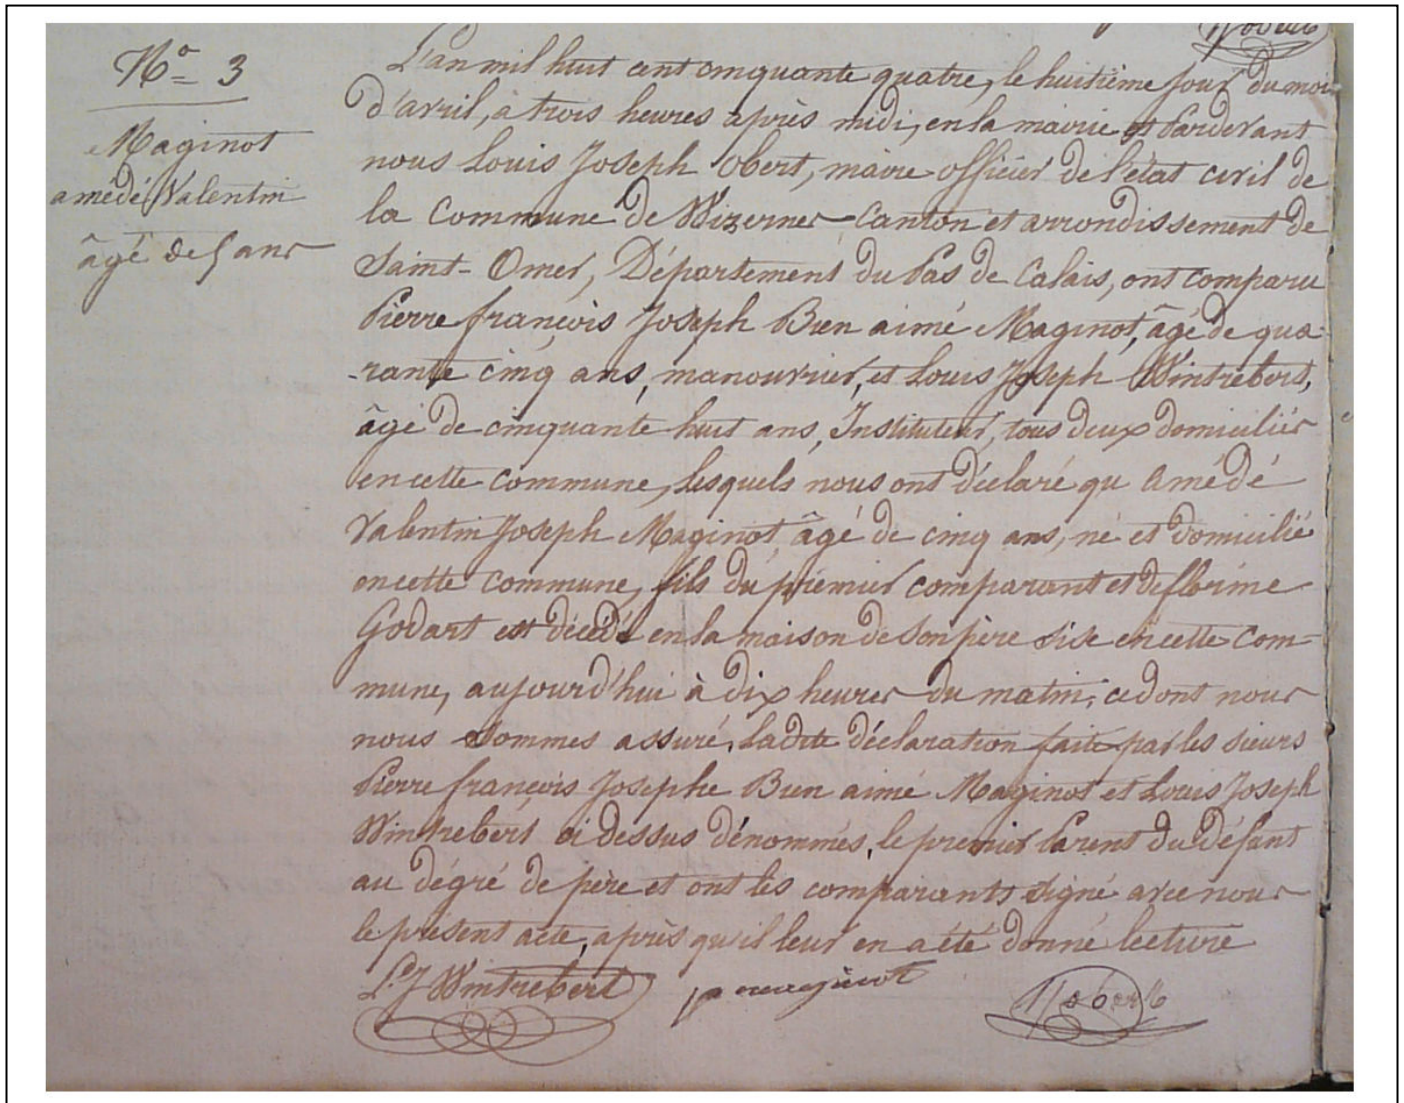 N° 3
Maginot
amédé Valentin
âgé de 5 ans
L'an mil huit cent cinquante quatre, le huitième jour du mois
d'avril, à trois heures après midi, en la mairie et Pardevant
nous Louis Joseph Obert, maire officier de l'état civil de
la Commune de Wizernes Canton et arrondissement de
Saint-Omer, Département du Pas de Calais, ont comparu
Pierre françois Joseph Bien aimé Maginot, âgé de qua-
-rante cinq ans, manouvrier, et Louis Joseph Wintrebert,
âgé de cinquante huit ans, Instituteur, tous deux domiciliés
en cette commune, lesquels nous ont déclaré qu Amédé
Valentin Joseph Maginot, âgé de cinq ans, né et domicilié
en cette commune, fils du premier comparant et de florine
Godart est décédé en la maison de son père sise en cette com-
mune, aujourd'hui à dix heures du matin; ce dont nous
nous sommes assuré, ladite déclaration faite par les sieurs
Pierre françois Josephe Bien aimé Maginot et Louis Joseph
Wintrebert ci dessus dénommés, le premier Parent du défunt
au dégré de père et ont les comparants signé avec nous
le présent acte, après qu'il leur en a été donné lecture
L. J Wintrebert p maginot